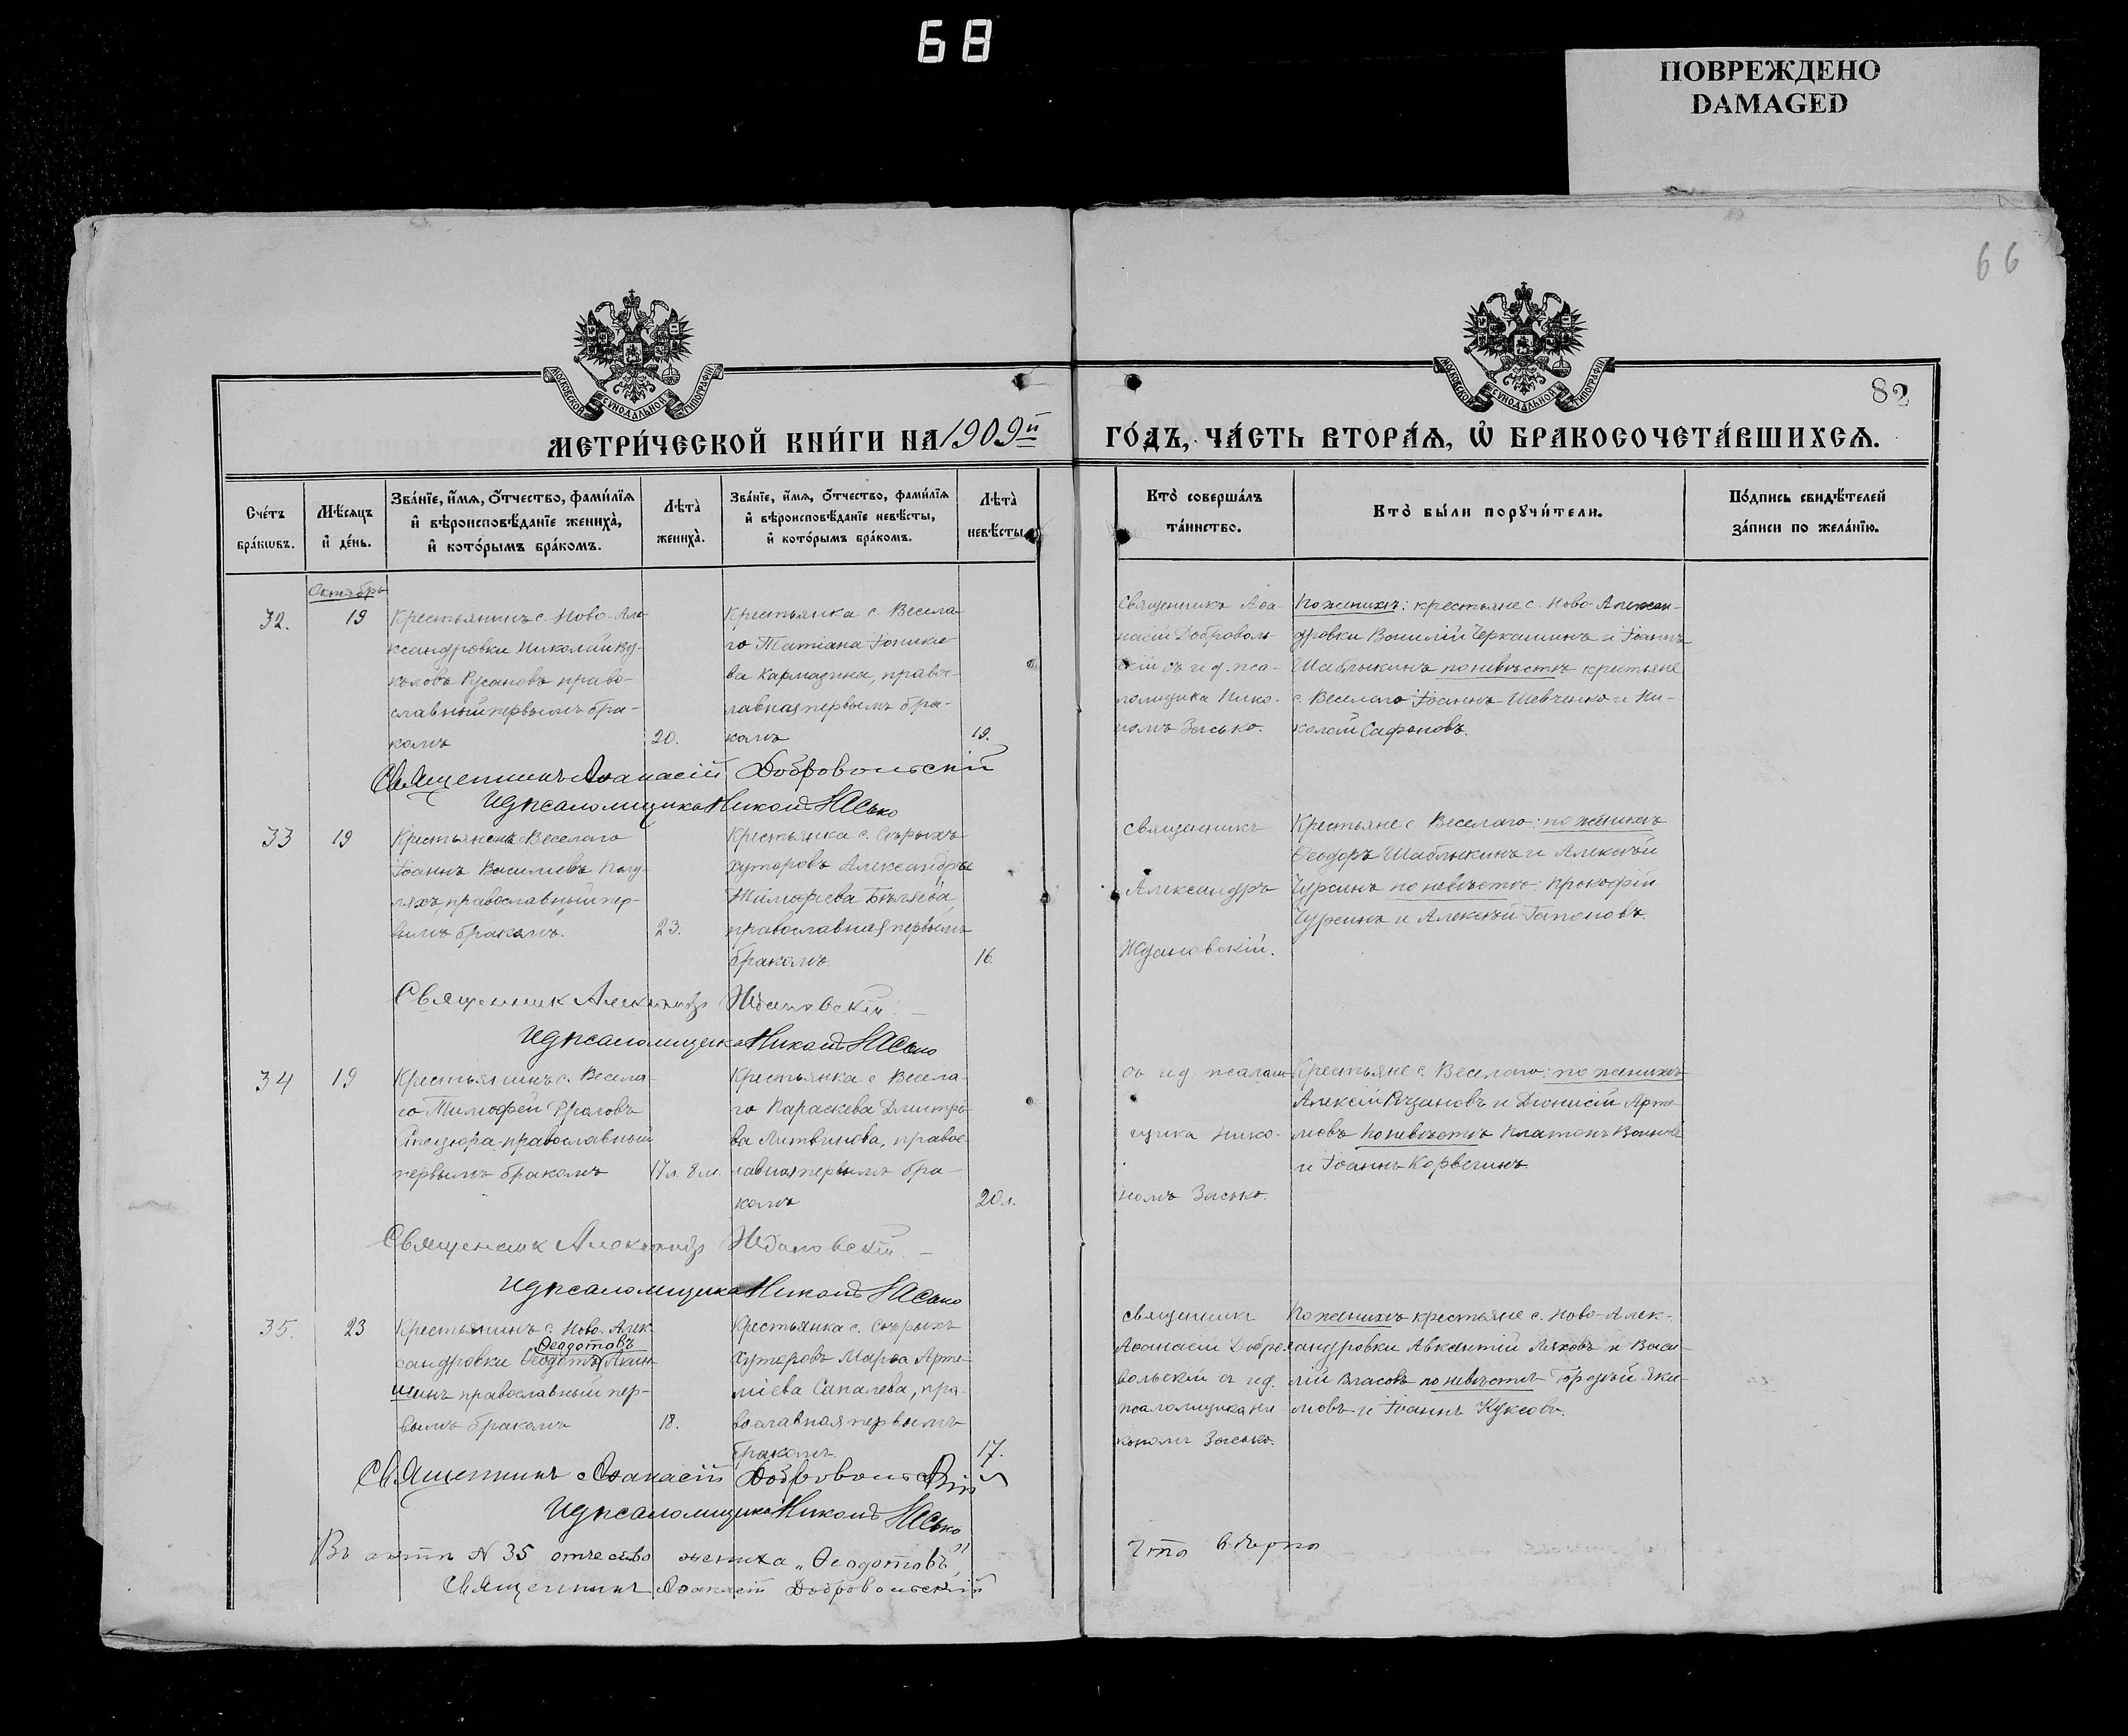 68
ПОВРЕЖДЕНО
DAMAGED
66
МОСКОВСКОЙ СѴНОДАЛЬНОЙ ТИПОГРАФІИ
МОСКОВСКОЙ СѴНОДАЛЬНОЙ ТИПОГРАФІИ
82
МЕТРИ́ЧЕСКОЙ КНИ́ГИ НА 1909й
ГО́ДЪ, ЧА́СТЬ ВТОРА́Ѧ, Ѡ҆ БРАКОСОЧЕТА́ВШИХСѦ.
Сче́тъ бра́кѡвъ.
Мѣ́сѧцъ и҆ де́нь.
Зва́нїе, и҆́мѧ, ѻ҆́тчество, фами́лїѧ и҆ вѣроисповѣ́данїе жениха̀, и҆ кото́рымъ бра́комъ.
Лѣта̀ жениха̀.
Зва́нїе, и҆́мѧ, ѻ҆́тчество, фами́лїѧ и҆ вѣроисповѣ́данїе невѣ́сты, и҆ кото́рымъ бра́комъ.
Лѣта̀ невѣ́сты
Кто̀ соверша́лъ та́инство.
Кто̀ бы́ли порꙋчи́тели.
По́дпись свидѣ́телей за́писи по жела́нїю.
Октябрь
32.
19
Крестьянинъ с. Ново-Але-
ксандровки Николай Ву-
коловъ Русановъ право-
славный первымъ бра-
комъ
20.
Крестьянка с. Весела-
го Татіана Іоникіе-
ва Кармазина, правос-
лавная первымъ бра-
комъ
19.
Священникъ Аѳа-
насій Доброволь-
скій съ и д. пса-
ломщика Нико-
номъ Засько.
По женихѣ: крестьяне с. Ново-Алексан-
дровки Василій Черкашинъ и Іоаннъ
Шаблыкинъ по невѣстѣ крестьяне
с. Веселаго Іоаннъ Шевченко и Ни-
колай Сафоновъ.
Священникъ Аѳанасій Добровольскій
И д псаломщика Никонъ Засько
33
19
Крестьянинъ с. Веселаго
Іоаннъ Васильевъ Полу-
ляхъ, православный пер-
вымъ бракомъ.
23.
Крестьянка с. Сѣрыхъ
хуторовъ Александра
Тимофеева Бѣляева,
православная первымъ
бракомъ.
16.
священникъ
Александръ
Ждановскій.
Крестьяне с. Веселаго: по женихѣ
Ѳеодоръ Шаблыкинъ и Алексѣй
Чурсинъ по невѣстѣ: Прокофій
Чурсинъ и Алексѣй Гапоновъ.
Священник Александр Ждановскій.
И д псаломщика Никонъ Засько
34
19
Крестьянинъ с. Весела-
го Тимофей Фроловъ
Стецюра православный
первымъ бракомъ
17 л. 8 м.
Крестьянка с Весела-
го Параскева Димитріе-
ва Литвинова, правос-
лавная первымъ бра-
комъ
20 л.
съ и д псалом-
щика Нико-
номъ Засько.
Крестьяне с. Веселаго: по женихѣ
Алексій Рязановъ и Діонисій Арте-
мовъ по невѣстѣ Платонъ
и Іоаннъ Корвегинъ
Священник Александр Ждановскій.
И д псаломщика Никонъ Засько
35.
23
Крестьянинъ с. Ново-Алек-
Ѳеодотовъ
сандровки Ѳеодотъ Акинь-
шинъ православный пер-
вымъ бракомъ
18.
Крестьянка с. Сѣрыхъ
Хуторовъ Марѳа Арте-
міева Сапалева, пра-
вославная первымъ
бракомъ
17.
священникъ
Аѳанасій Добро-
вольскій съ ид.
псаломщика Ни-
кономъ Засько.
По женихѣ крестьяне с. Ново-Алек-
сандровки Авксентій Ляховъ и Васи-
лій Власовъ по невѣстѣ Гордѣй Яки-
мовъ и Іоаннъ Куксовъ.
Священникъ Аѳанасій Добровольскій
И д псаломщика Никонъ Засько
Въ актѣ № 35 отчество жениха „Ѳеодотовъ"
что вѣрно
Священникъ Аѳанасій Добровольскій